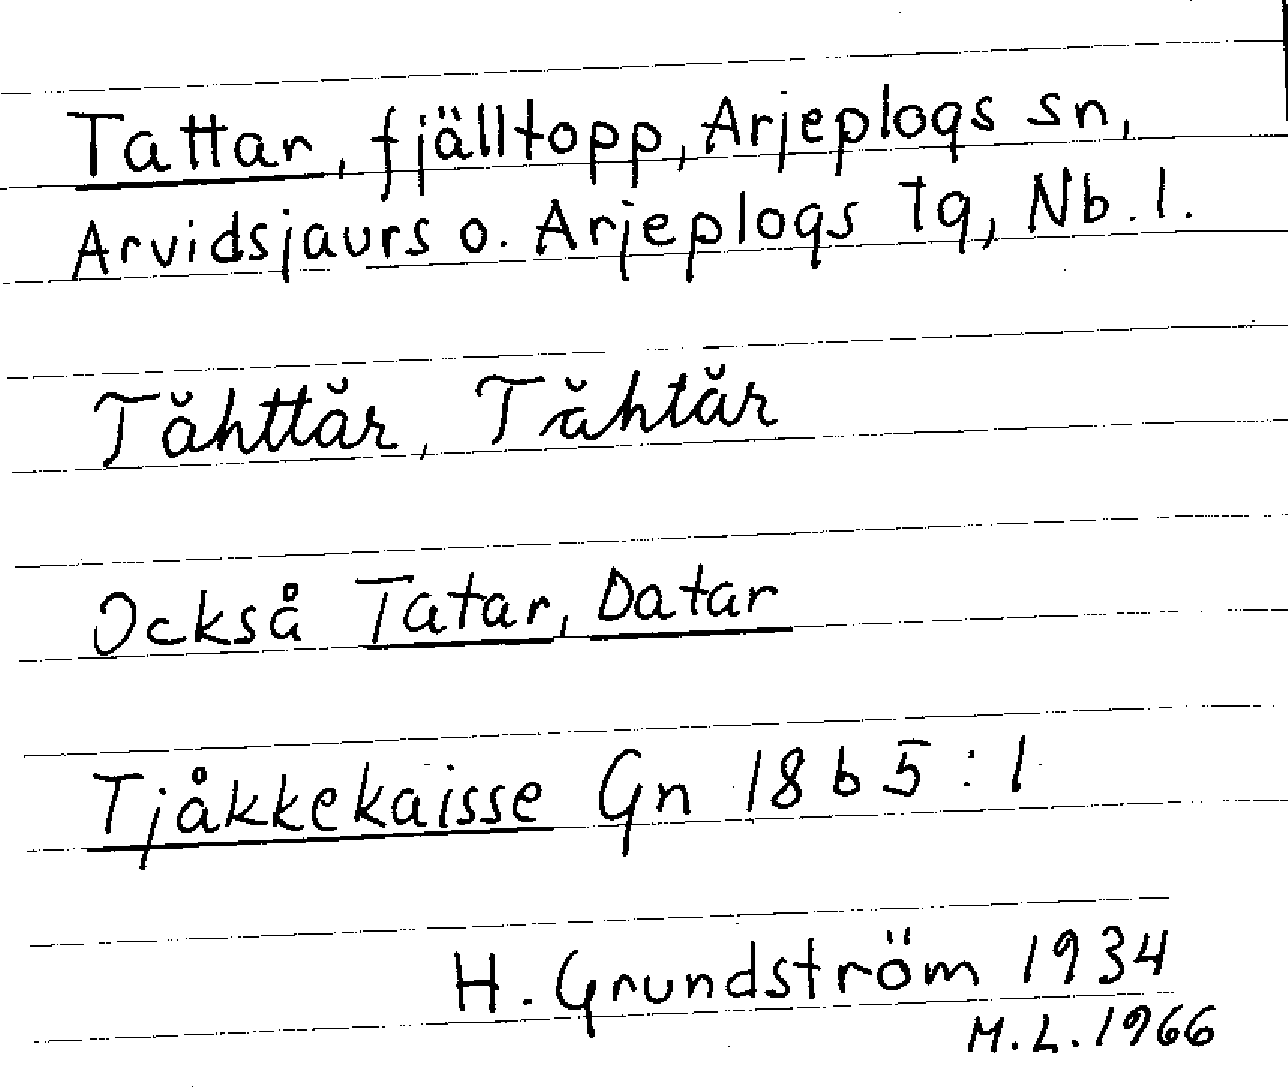 Tattar, fjälltopp, Arjeplogs sn,
Arvidsjaurs o. Arjeplogs Tg, Nb. l.
Tǎhttǎr, Tǎhtǎr
Också Tatar, Datar
Tjåkkekaisse Gn 18 b 5 : 1
H. Grundström 1934
M. L. 1966